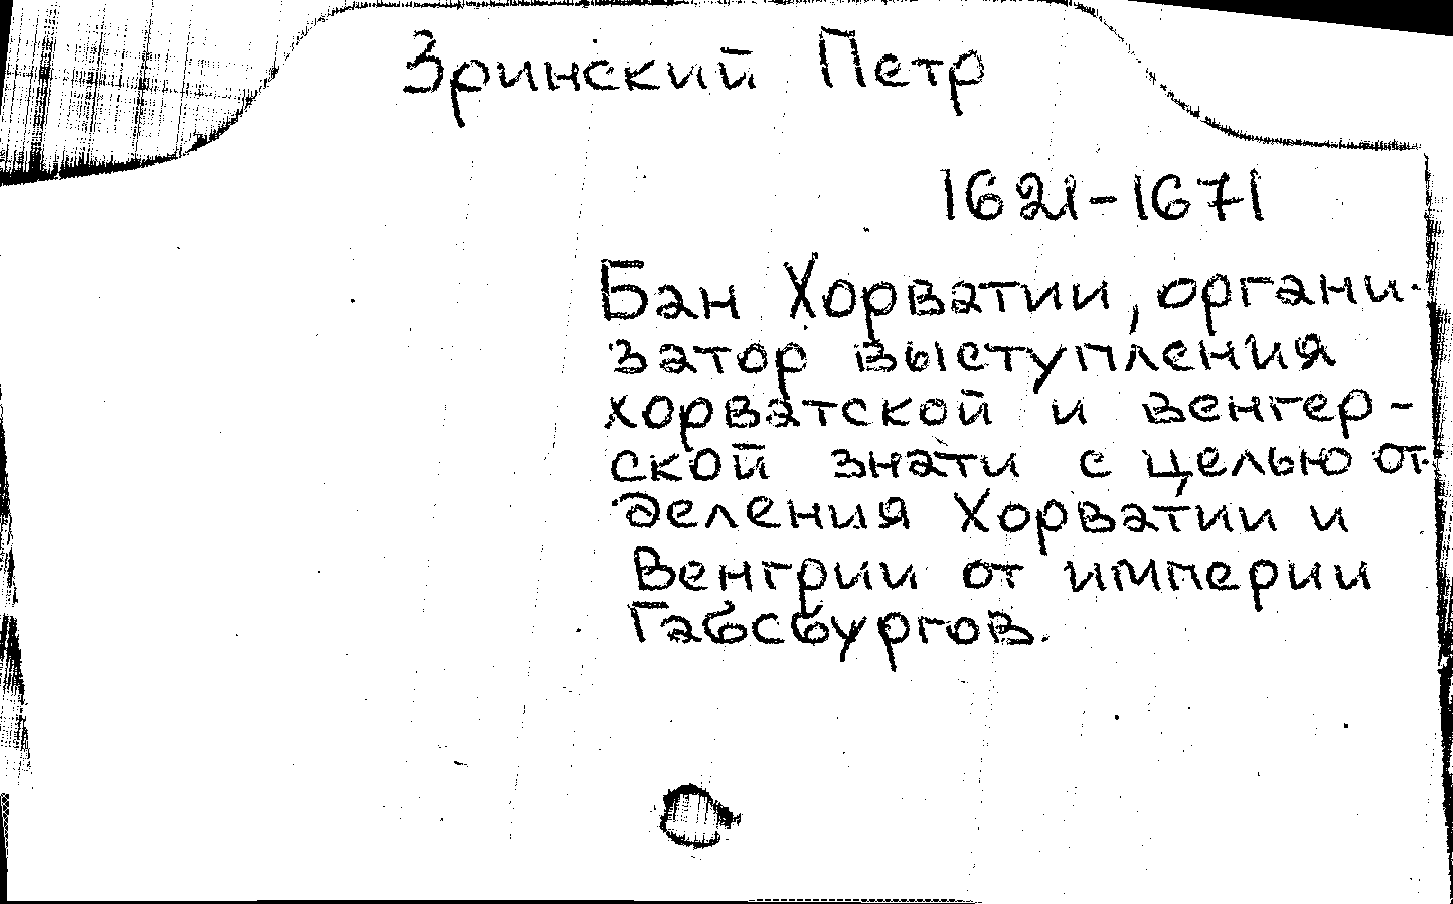 Зринский Петр
1621-1671
Бан Хорватии, органи-
затор выступления
хорватской и венгер-
ской знати с целью от-
деления Хорватии и
Венгрии от империи
Габсбургов.